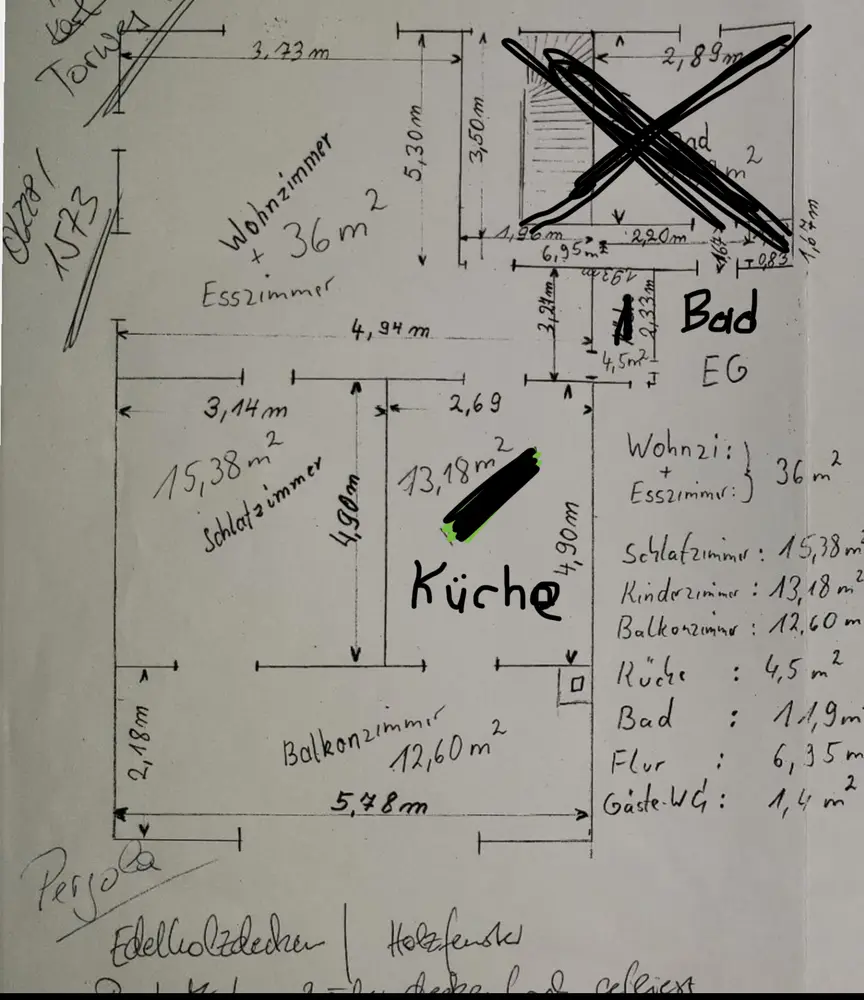 Torwes
1573
3,73m
5,30m
3,50m
2,89m
m²
Wohnzimmer
+ 36m²
Esszimmer
1,96m
2,20m
1,67m
1,67m
0,83
6,95m²
1,93m
3,24m
2,33m
4,5m²
Bad
EG
4,94m
3,14m
2,69
15,38m²
Schlafzimmer
4,90m
13,18m²
4,90m
Küche
Wohnzi:
+
Esszimmer:
36m²
Schlafzimmer: 15,38m²
Kinderzimmer: 13,18m²
Balkonzimmer: 12,60m
Küche : 4,5m²
Bad : 11,9m
Flur : 6,95m
Gäste-WC: 1,4m²
2,18m
Balkonzimmer
12,60m²
5,78m
Pergola
Edelholzdecken | Holzfenster